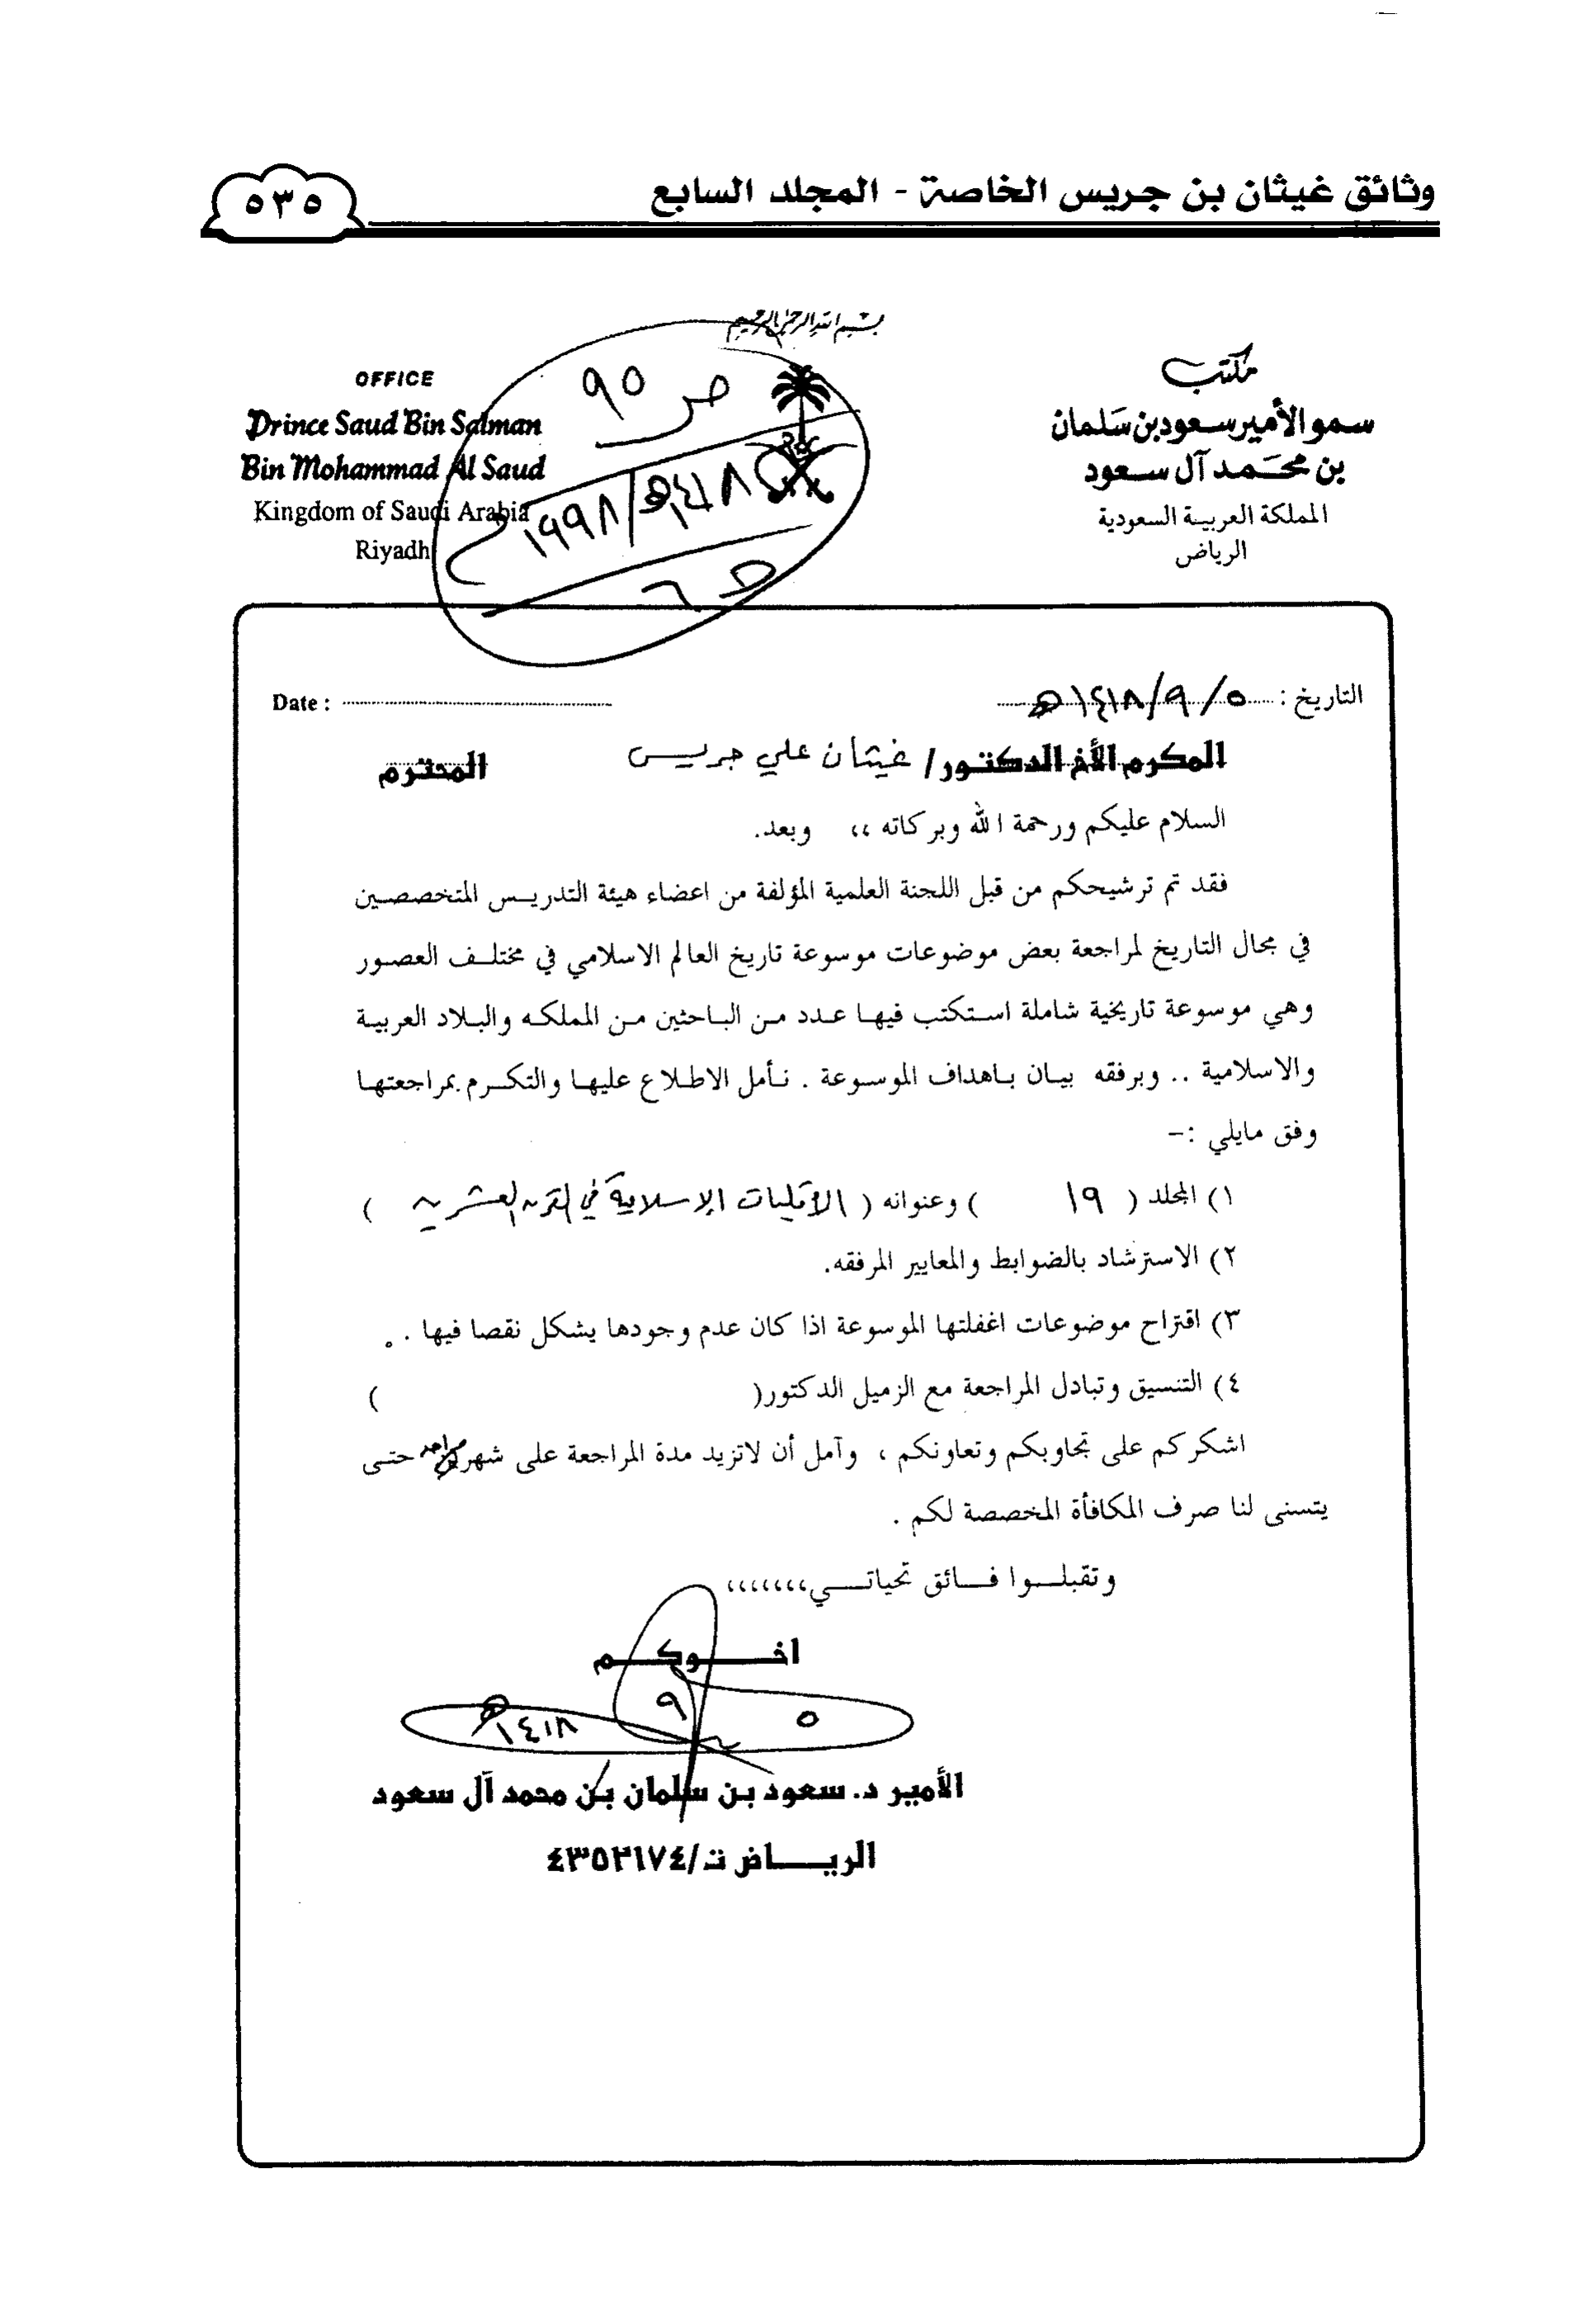 وثائق غيثان بن جريس الخاصة - المجلد السابع
٥٣٥
بسم الله الرحمن الرحيم
مكتب
سمو الأمير سعود بن سلمان
بن محمد آل سعود
المملكة العربية السعودية
الرياض
OFFICE
Prince Saud Bin Salman
Bin Mohammad Al Saud
Kingdom of Saudi Arabia
Riyadh
ص ٩٥
١٤١٨هـ/١٩٩٨م
التاريخ : ٥/٩/١٤١٨هـ
Date :
المكرم الأخ الدكتور/ غيثان علي جريس المحترم
السلام عليكم ورحمة الله وبركاته ،، وبعد.
فقد تم ترشيحكم من قبل اللجنة العلمية المؤلفة من اعضاء هيئة التدريس المتخصصين
في مجال التاريخ لمراجعة بعض موضوعات موسوعة تاريخ العالم الاسلامي في مختلف العصور
وهي موسوعة تاريخية شاملة استكتب فيها عدد من الباحثين من المملكه والبلاد العربية
والاسلامية .. وبرفقه بيان باهداف الموسوعة . نأمل الاطلاع عليها والتكرم بمراجعتها
وفق مايلي :-
١) المجلد ( ١٩ ) وعنوانه ( الأقليات الإسلامية في القرن العشرين )
٢) الاسترشاد بالضوابط والمعايير المرفقه.
٣) اقتراح موضوعات اغفلتها الموسوعة اذا كان عدم وجودها يشكل نقصا فيها .
٤) التنسيق وتبادل المراجعة مع الزميل الدكتور( )
اشكركم على تجاوبكم وتعاونكم ، وآمل أن لاتزيد مدة المراجعة على شهر واحد حتى
يتسنى لنا صرف المكافأة المخصصة لكم .
وتقبلوا فائق تحياتي،،،،،،،
اخوكم
٥ ٩ ١٤١٨هـ
الأمير د. سعود بن سلمان بن محمد آل سعود
الرياض ت/٤٣٥٢١٧٤